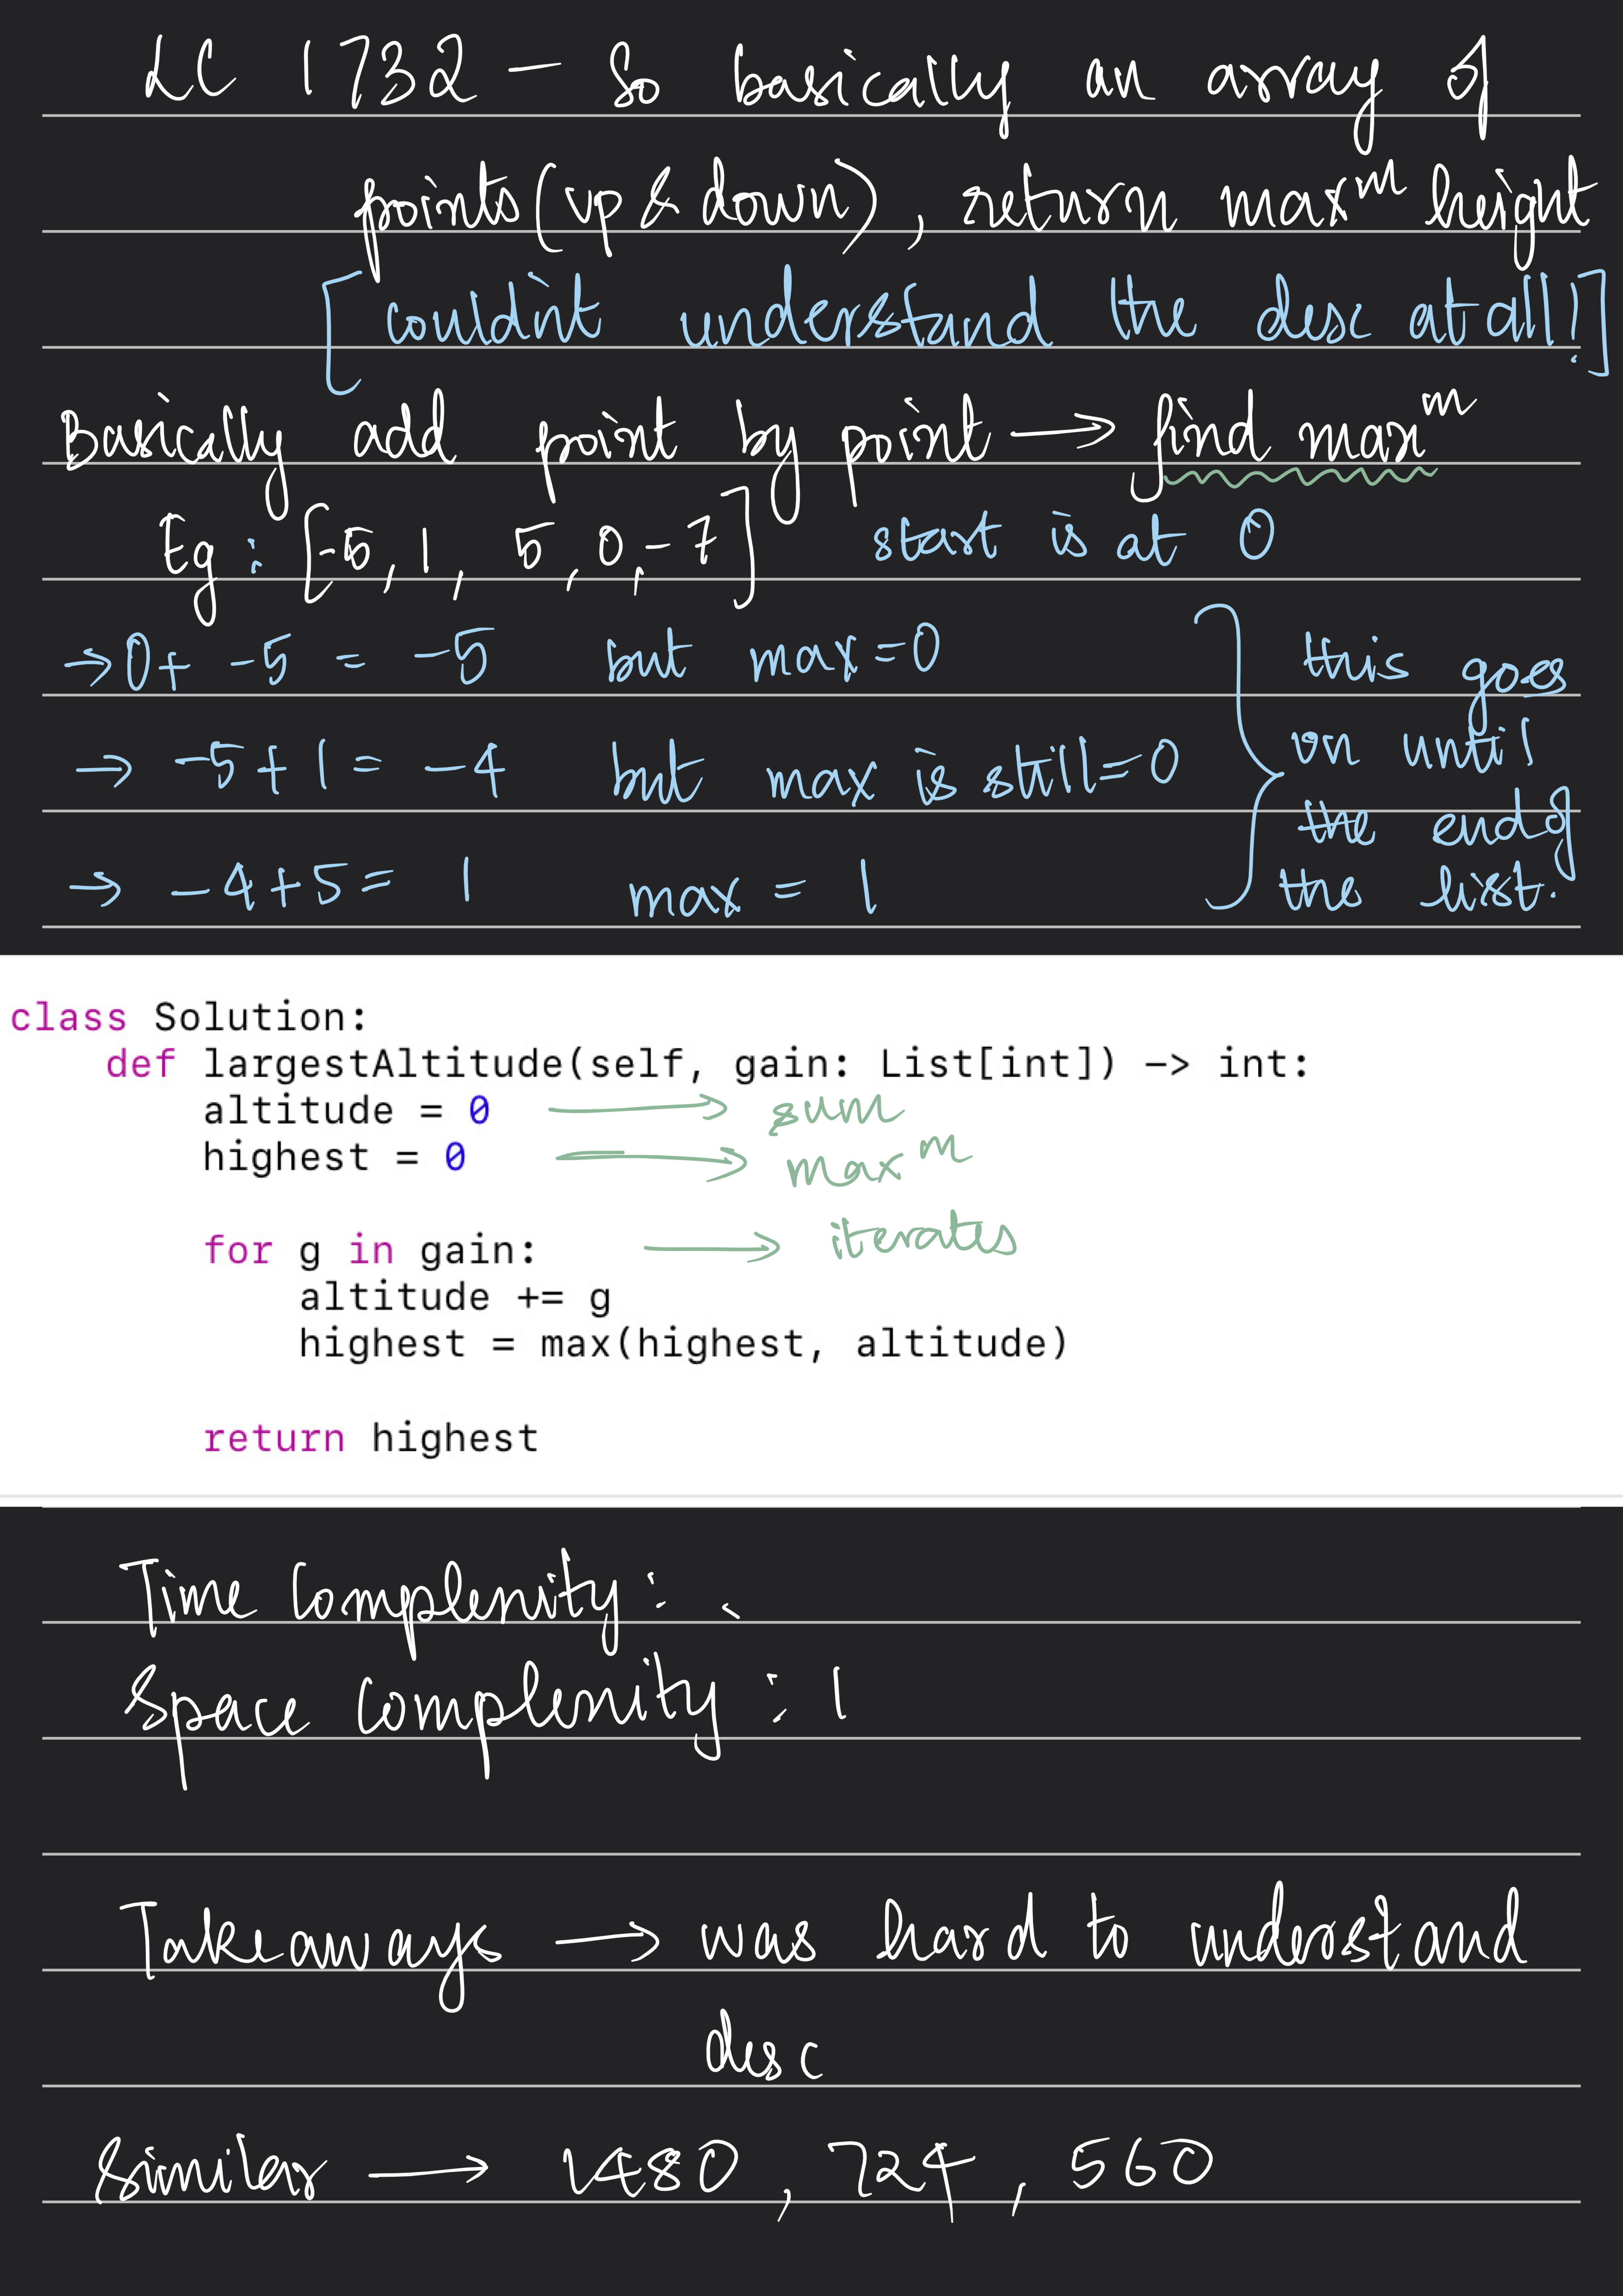 LC 1732 — So basically an array of
points (up & down), return maxᵐ height
[couldn't understand the desc at all!]
Basically add point by point → find maxᵐ
Eg: [-5, 1, 5, 0, -7] start is at 0
→ 0 + -5 = -5 but max = 0
→ -5 + 1 = -4 but max is still = 0
→ -4 + 5 = 1 max = 1
this goes
on until
the end of
the list.
class Solution:
    def largestAltitude(self, gain: List[int]) -> int:
        altitude = 0 → sum
        highest = 0 → maxᵐ
        for g in gain: → iterates
            altitude += g
            highest = max(highest, altitude)
        return highest
Time Complexity:
Space Complexity : 1
Takeaways → was hard to understand
desc
Similar → 1480, 724, 560